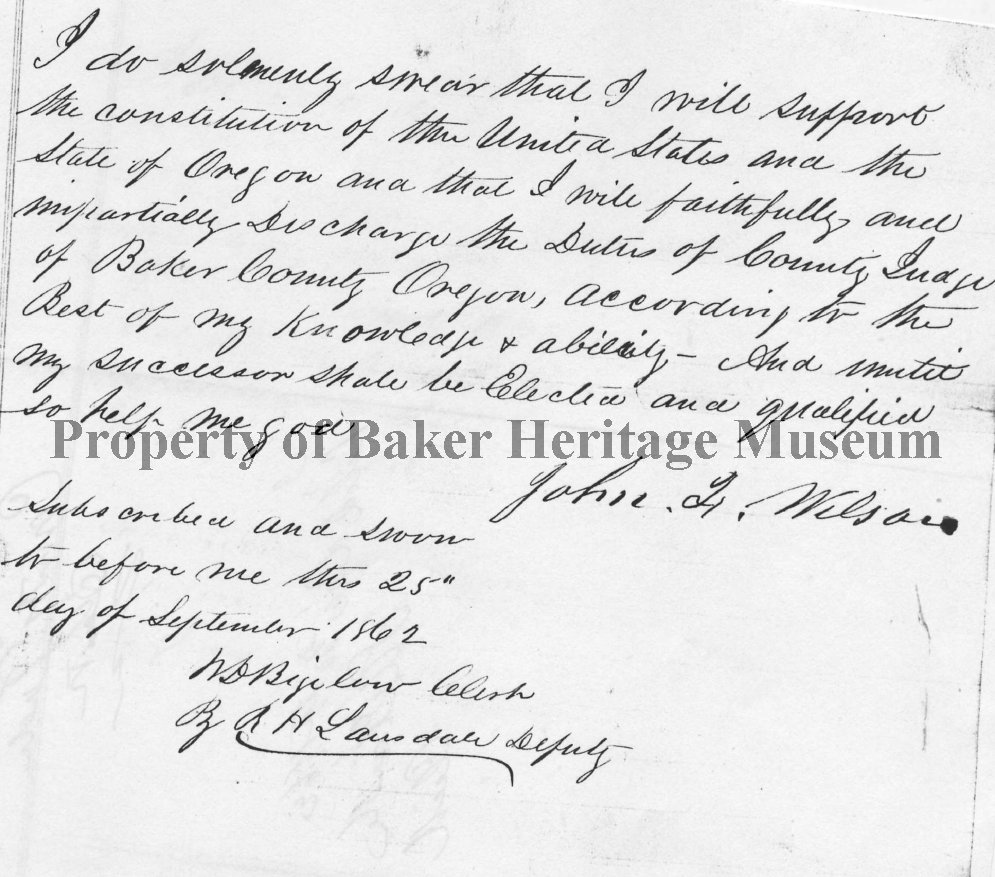 I do solmenly swear that I will support
the constitution of the United States and the
State of Oregon and that I will faithfully and
impartially Discharge the Duties of County Judge
of Baker County Oregon, according to the
Best of my Knowledge & ability - And until
my successor shall be Elected and qualified
so help me god
Property of Baker Heritage Museum
John Q. Wilson
Subscribed and sworn
to before me this 25"
day of September 1862
WD Bigelow Clerk
By R H Lansdale Deputy